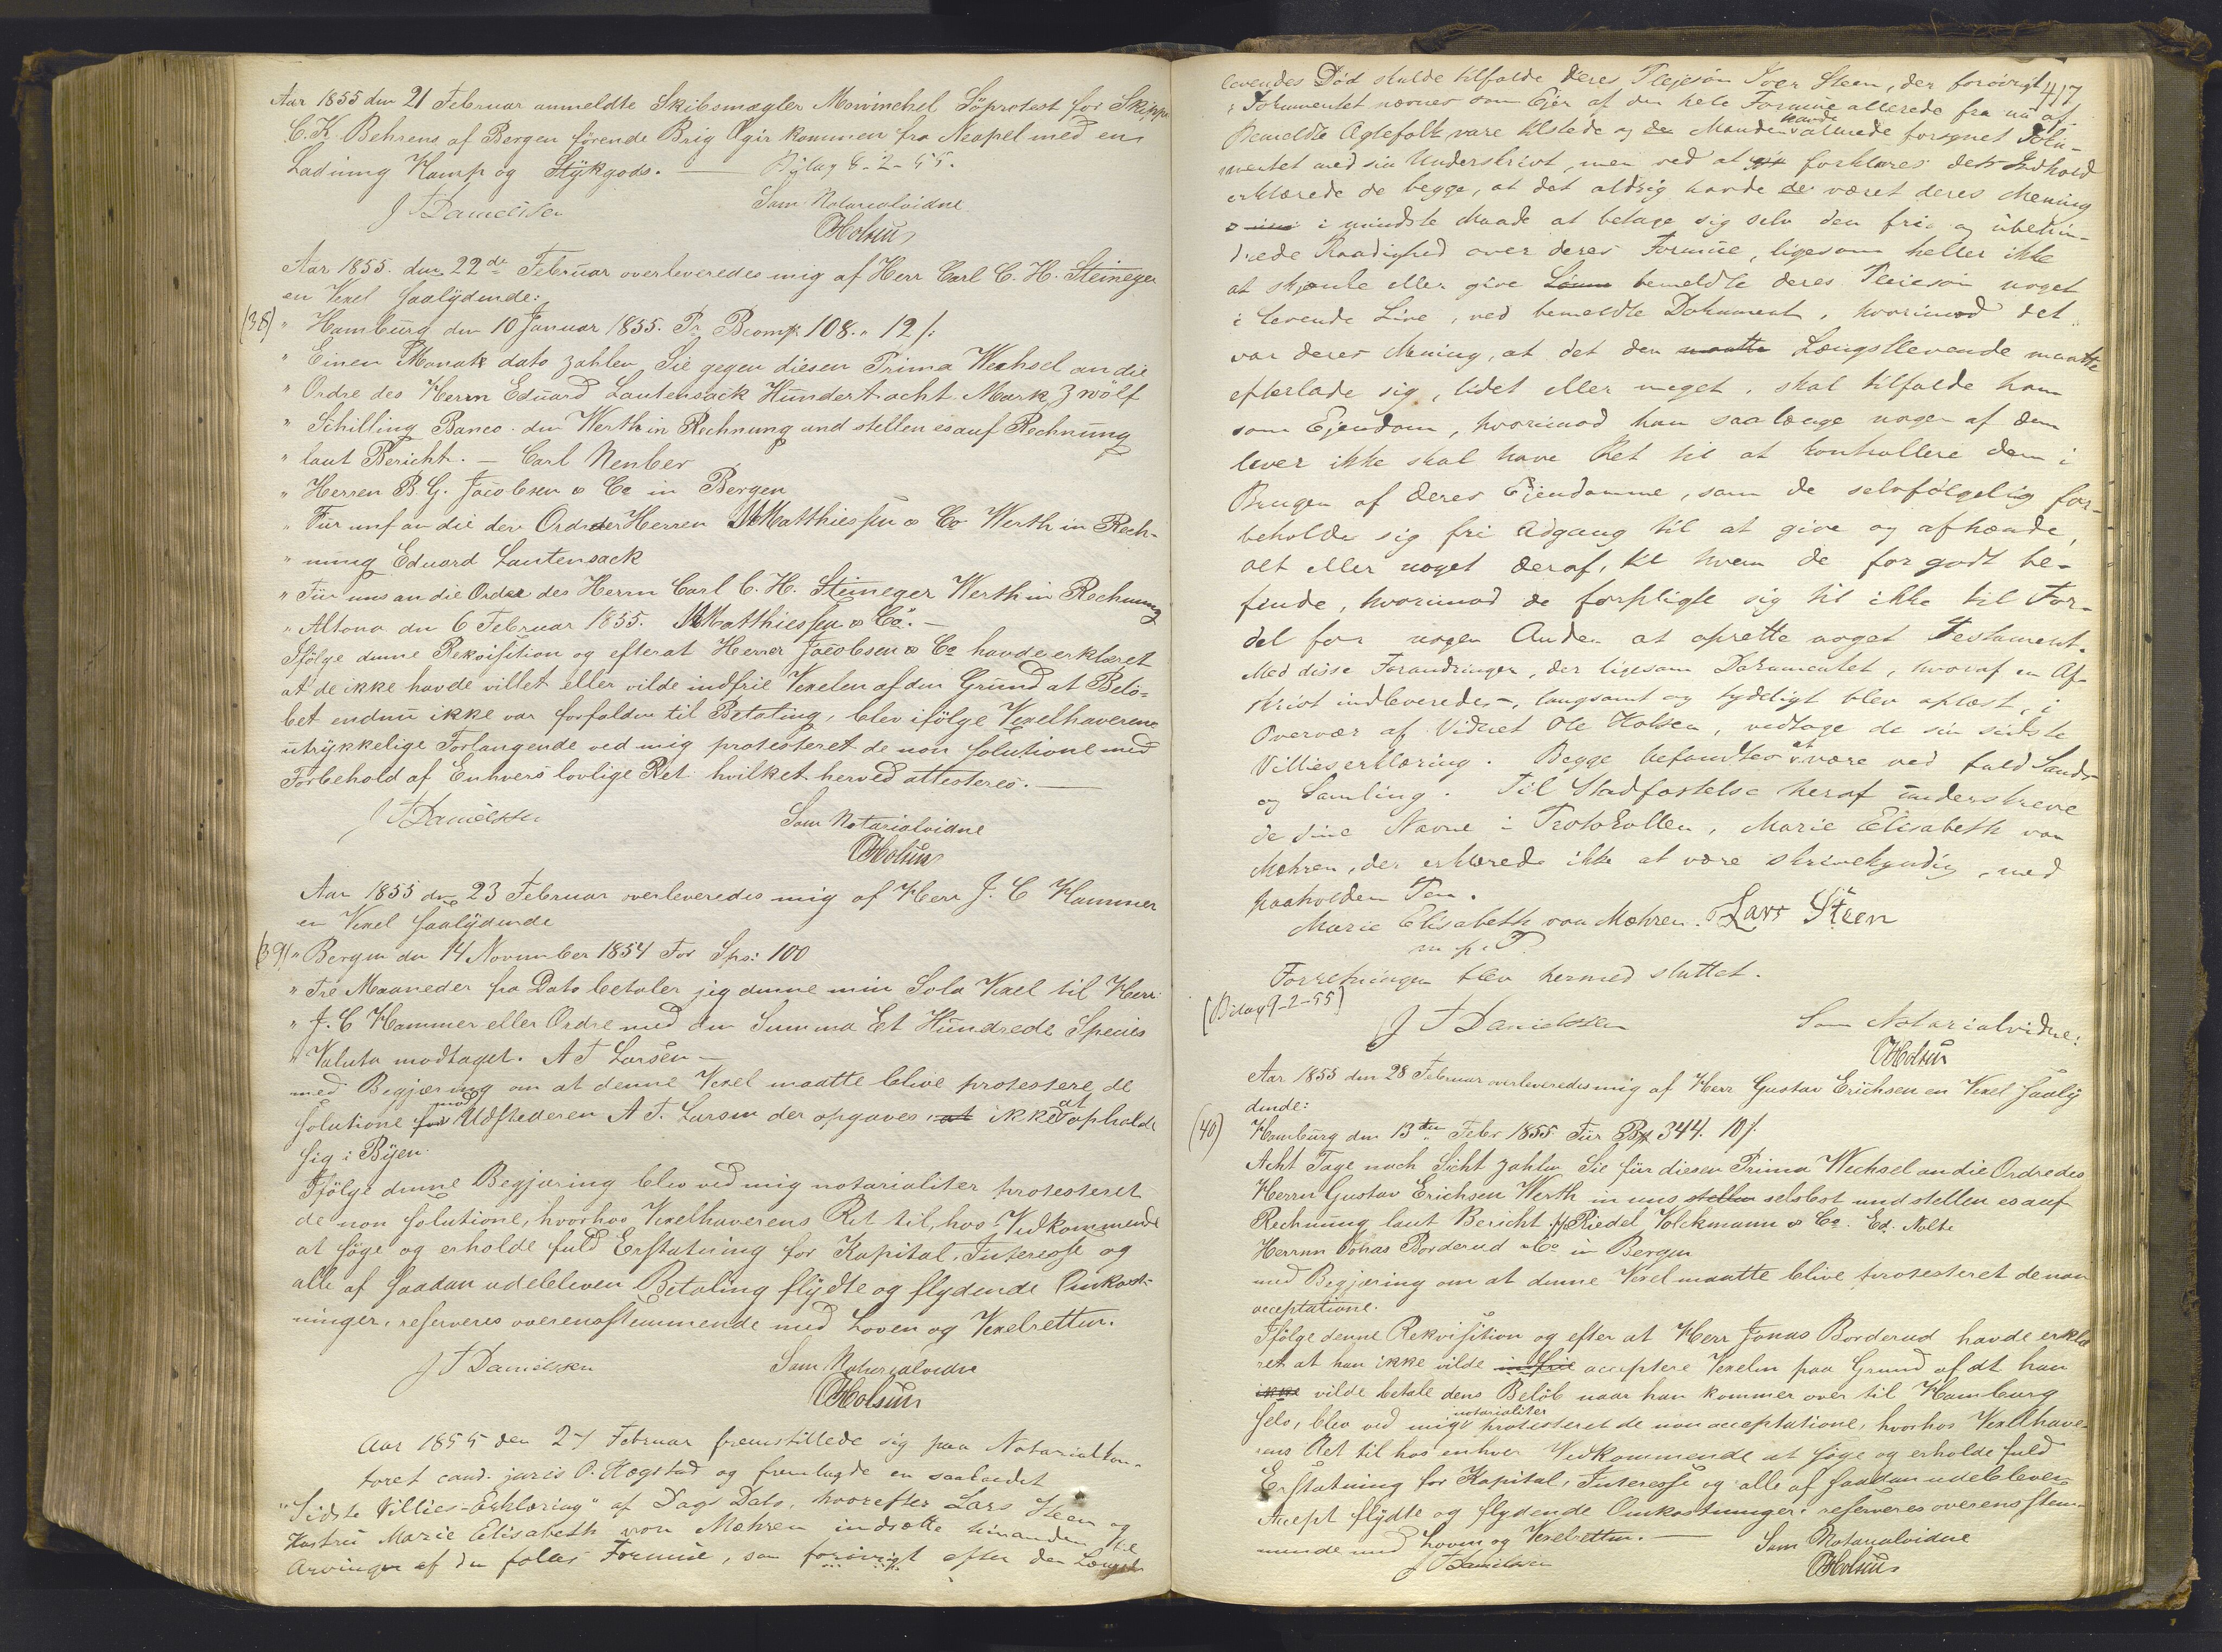 Aar 1855 den 21 Februar anmeldte Skibsmægler Mowinchel Söprotest for Skipper
C. K. Behrens af Bergen förende Brig Ægir kommen fra Neapel med en
Ladning Hamp og Stÿkgods. — Bilag 8-2-55.
J F Danielssen Som Notarialvidne
OHolsen
Aar 1855. den 22de Februar overleveredes mig af Herr Carl C. H. Steineger
en Vexel saalÿdende:
(38) " Hamburg den 10 Januar 1855. Pr Bcomp. 108. " 12 /:
" Einen Monat dato zahlen Sie gegen diesen Prima Wechsel an die
" Ordre des Herrn Eduard Lautensack Hundert acht Mark Zwölf
" Schilling Banco. den Werth in Rechnung und stellen es auf Rechnung
" laut Bericht. — Carl Nenber
" Herren B. G. Jacobsen & Co in Bergen
" Für uns an die der Ordre der Herren M Matthiessen & Co Werth in Rech-
" nung Eduard Lautensack
" Für uns an die Ordre des Herrn Carl C. H. Steineger Werth in Rechnung
" Altona den 6 Februar 1855. M Matthiessen & Co. —
Ifölge denne Rekvisition og efterat Herrer Jacobsen & Co havde erklæret
at de ikke havde villet eller vilde indfrie Vexelen af den Grund at Belö-
bet endnu ikke var forfalden til Betaling, blev ifölge Vexelhaverens
utrÿkkelige Forlangende ved mig protesteret de non solutione med
Forbehold af Enhvers lovlige Ret hvilket herved attesteres. —
J F Danielssen Som Notarialvidne
OHolsen
Aar 1855 den 23 Februar overleveredes mig af Herr J. C Hammer
en Vexel saalÿdende
(39) " Bergen den 14 November 1854 For Sps: 100
" Tre Maaneder fra Dato betaler jeg denne min Sola Vexel til Herr
" J. C Hammer eller Ordre med den Summa Et Hundrede Species
" Valuta modtaget. A F Larsen —
med Begjæring om at denne Vexel maatte blive protestere de
solutione for mod Udstederen A F. Larsen der opgaves at ikke at opholde
sig i Bÿen.
Ifölge denne Begjæring blev ved mig notarialiter protesteret
de non solutione, hvorhos Vexelhaverens Ret til, hos Vedkommende
at söge og erholde fuld Erstatning for Kapital, Interesse og
alle af saadan udebleven Betaling flÿdte og flydende Omkost-
ninger, reserveres overensstemmende med Loven og Vexelretten.
J F Danielssen Som Notarialvidne
OHolsen
Aar 1855 den 27 Februar fremstillede sig paa Notarialkon-
toret cand. juris O. Hegstad og fremlagde en saakaldet
"Sidste Villies-Erklæring" af Dags Dato, hvorefter Lars Steen og
Hustru Marie Elisabeth von Mehren indsætte hinanden til
Arvinger af den fælles Formue, som forövrigt efter den Længst-
417
levendes Död skulde tilfalde deres Plejesön Iver Steen, der forövrigt
i Dokumentet nævnes som Ejer af den hele Formue allerede fra nu af.
Bemeldte Ægtefolk vare tilstede og de Manden havde allerede forsynet Doku-
mentet med sin Underskrivt, men ved at forklares dets Indhold
erklærede de begge, at det aldrig havde de været deres Mening
i mindste Maade at betage sig selv den frie og ubehin-
drede Raadighed over deres Formue, ligesom heller ikke
at skjenke eller give bemeldte deres Pleiesön noget
i levende Live, ved bemeldte Dokument, hvorimod det
var deres Mening, at det den maatte Længstlevende maatte
efterlade sig, lidet eller meget, skal tilfalde ham
som Ejendom, hvorimod han saalænge nogen af dem
lever ikke skal have Ret til at kontrollere dem i
Brugen af deres Ejendomme, som de selvfölgelig for-
beholde sig fri Adgang til at give og afhænde,
alt eller noget deraf, til hvem de for godt be-
finde, hvorimod de forpligte sig til ikke til For-
del for nogen Anden at oprette noget Testament.
Med disse Forandringer, der ligesom Dokumentet, hvoraf en Af-
skrivt indleveredes, langsamt og tydeligt blev oplæst, i
Overvær af Vidnet Ole Holsen, vedtoge de sin sidste
Villieserklæring. Begge befandtes at være ved fuld Sands
og Samling. Til Stadfæstelse heraf underskreve
de sine Navne i Protokollen, Marie Elisabeth von
Mehren, der erklærede ikke at være skrivekyndig, med
paaholden Pen.
Marie Elisabeth von Mehren. Lars Steen
m. p. P.
Forretningen blev hermed sluttet.
(Bilag 9-2-55)
J F Danielssen Som Notarialvidne:
OHolsen
Aar 1855 den 28 Februar overleveredes mig af Herr Gustav Erichsen en Vexel saalÿ
dende:
(40) Hamburg den 13ten Febr 1855 Für B 344. 10/.
Acht Tage nach Sicht zahlen Sie für diesen Prima Wechsel an die Ordre des
Herrn Gustav Erichsen Werth in uns stellen selsbst und stellen es auf
Rechnung laut Bericht. pp Riedel Volckmann & Co. Ed. Nolte
Herrnn Jonas Borderud & Co in Bergen
med Begjæring om at denne Vexel maatte blive protesteret de non
acceptatione.
Ifölge denne Rekvisition og efter at Herr Jonas Borderud havde erklæ
ret at han ikke vilde indfrie acceptere Vexelen paa Grund af at han
ikke vilde betale dens Belöb naar han kommer over til Hamburg
selv, blev ved mig notarialiter protesteret de non acceptatione, hvorhos Vexelhave-
rens Ret til hos enhver Vedkommende at söge og erholde fuld
Erstatning for Kapital, Interesse og alle af saadan udebleven
Accept flÿdte og flydende Omkostninger reserveres overensstem-
mende med Loven og Vexelretten. — Som Notarialvidne
J F Danielssen OHolsen